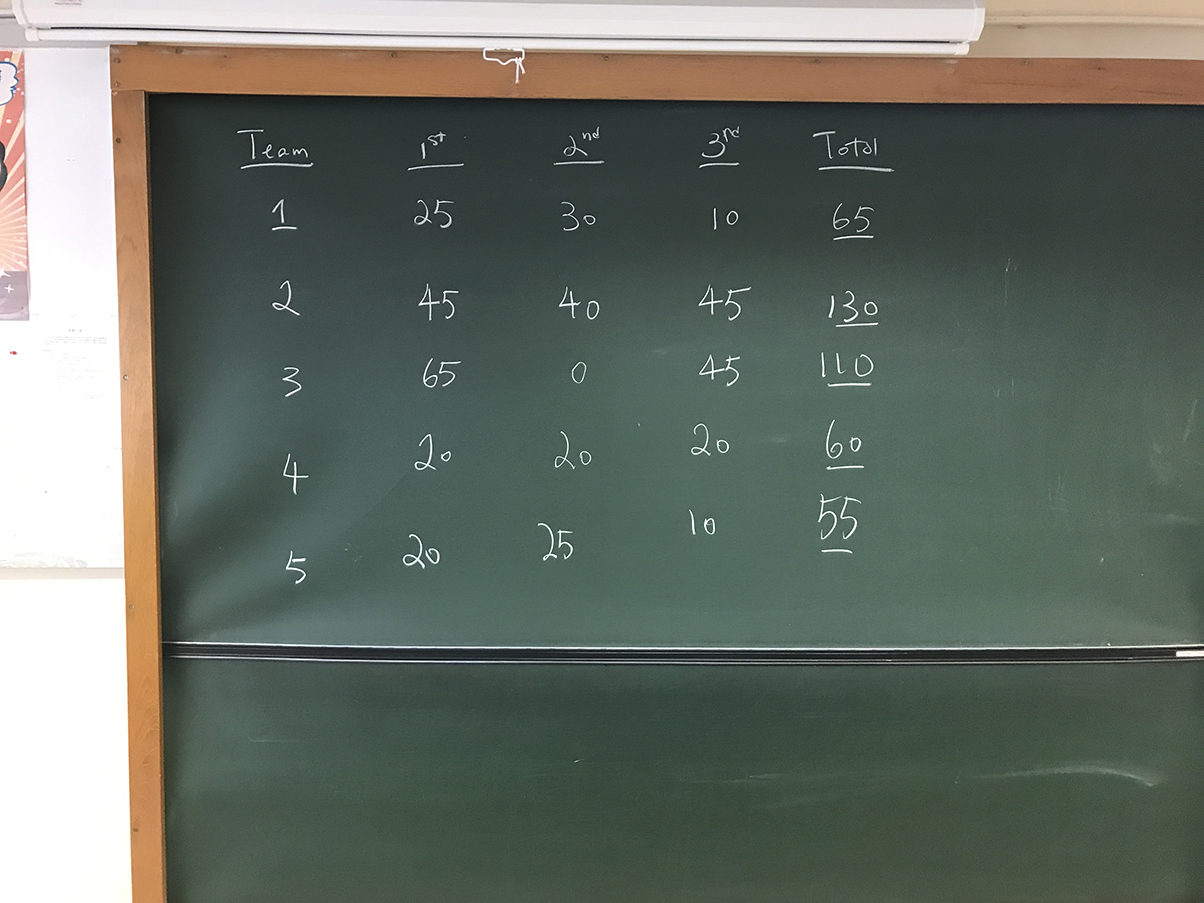 Team 1st 2nd 3nd Total
1 25 30 10 65
2 45 40 45 130
3 65 0 45 110
4 20 20 20 60
5 20 25 10 55